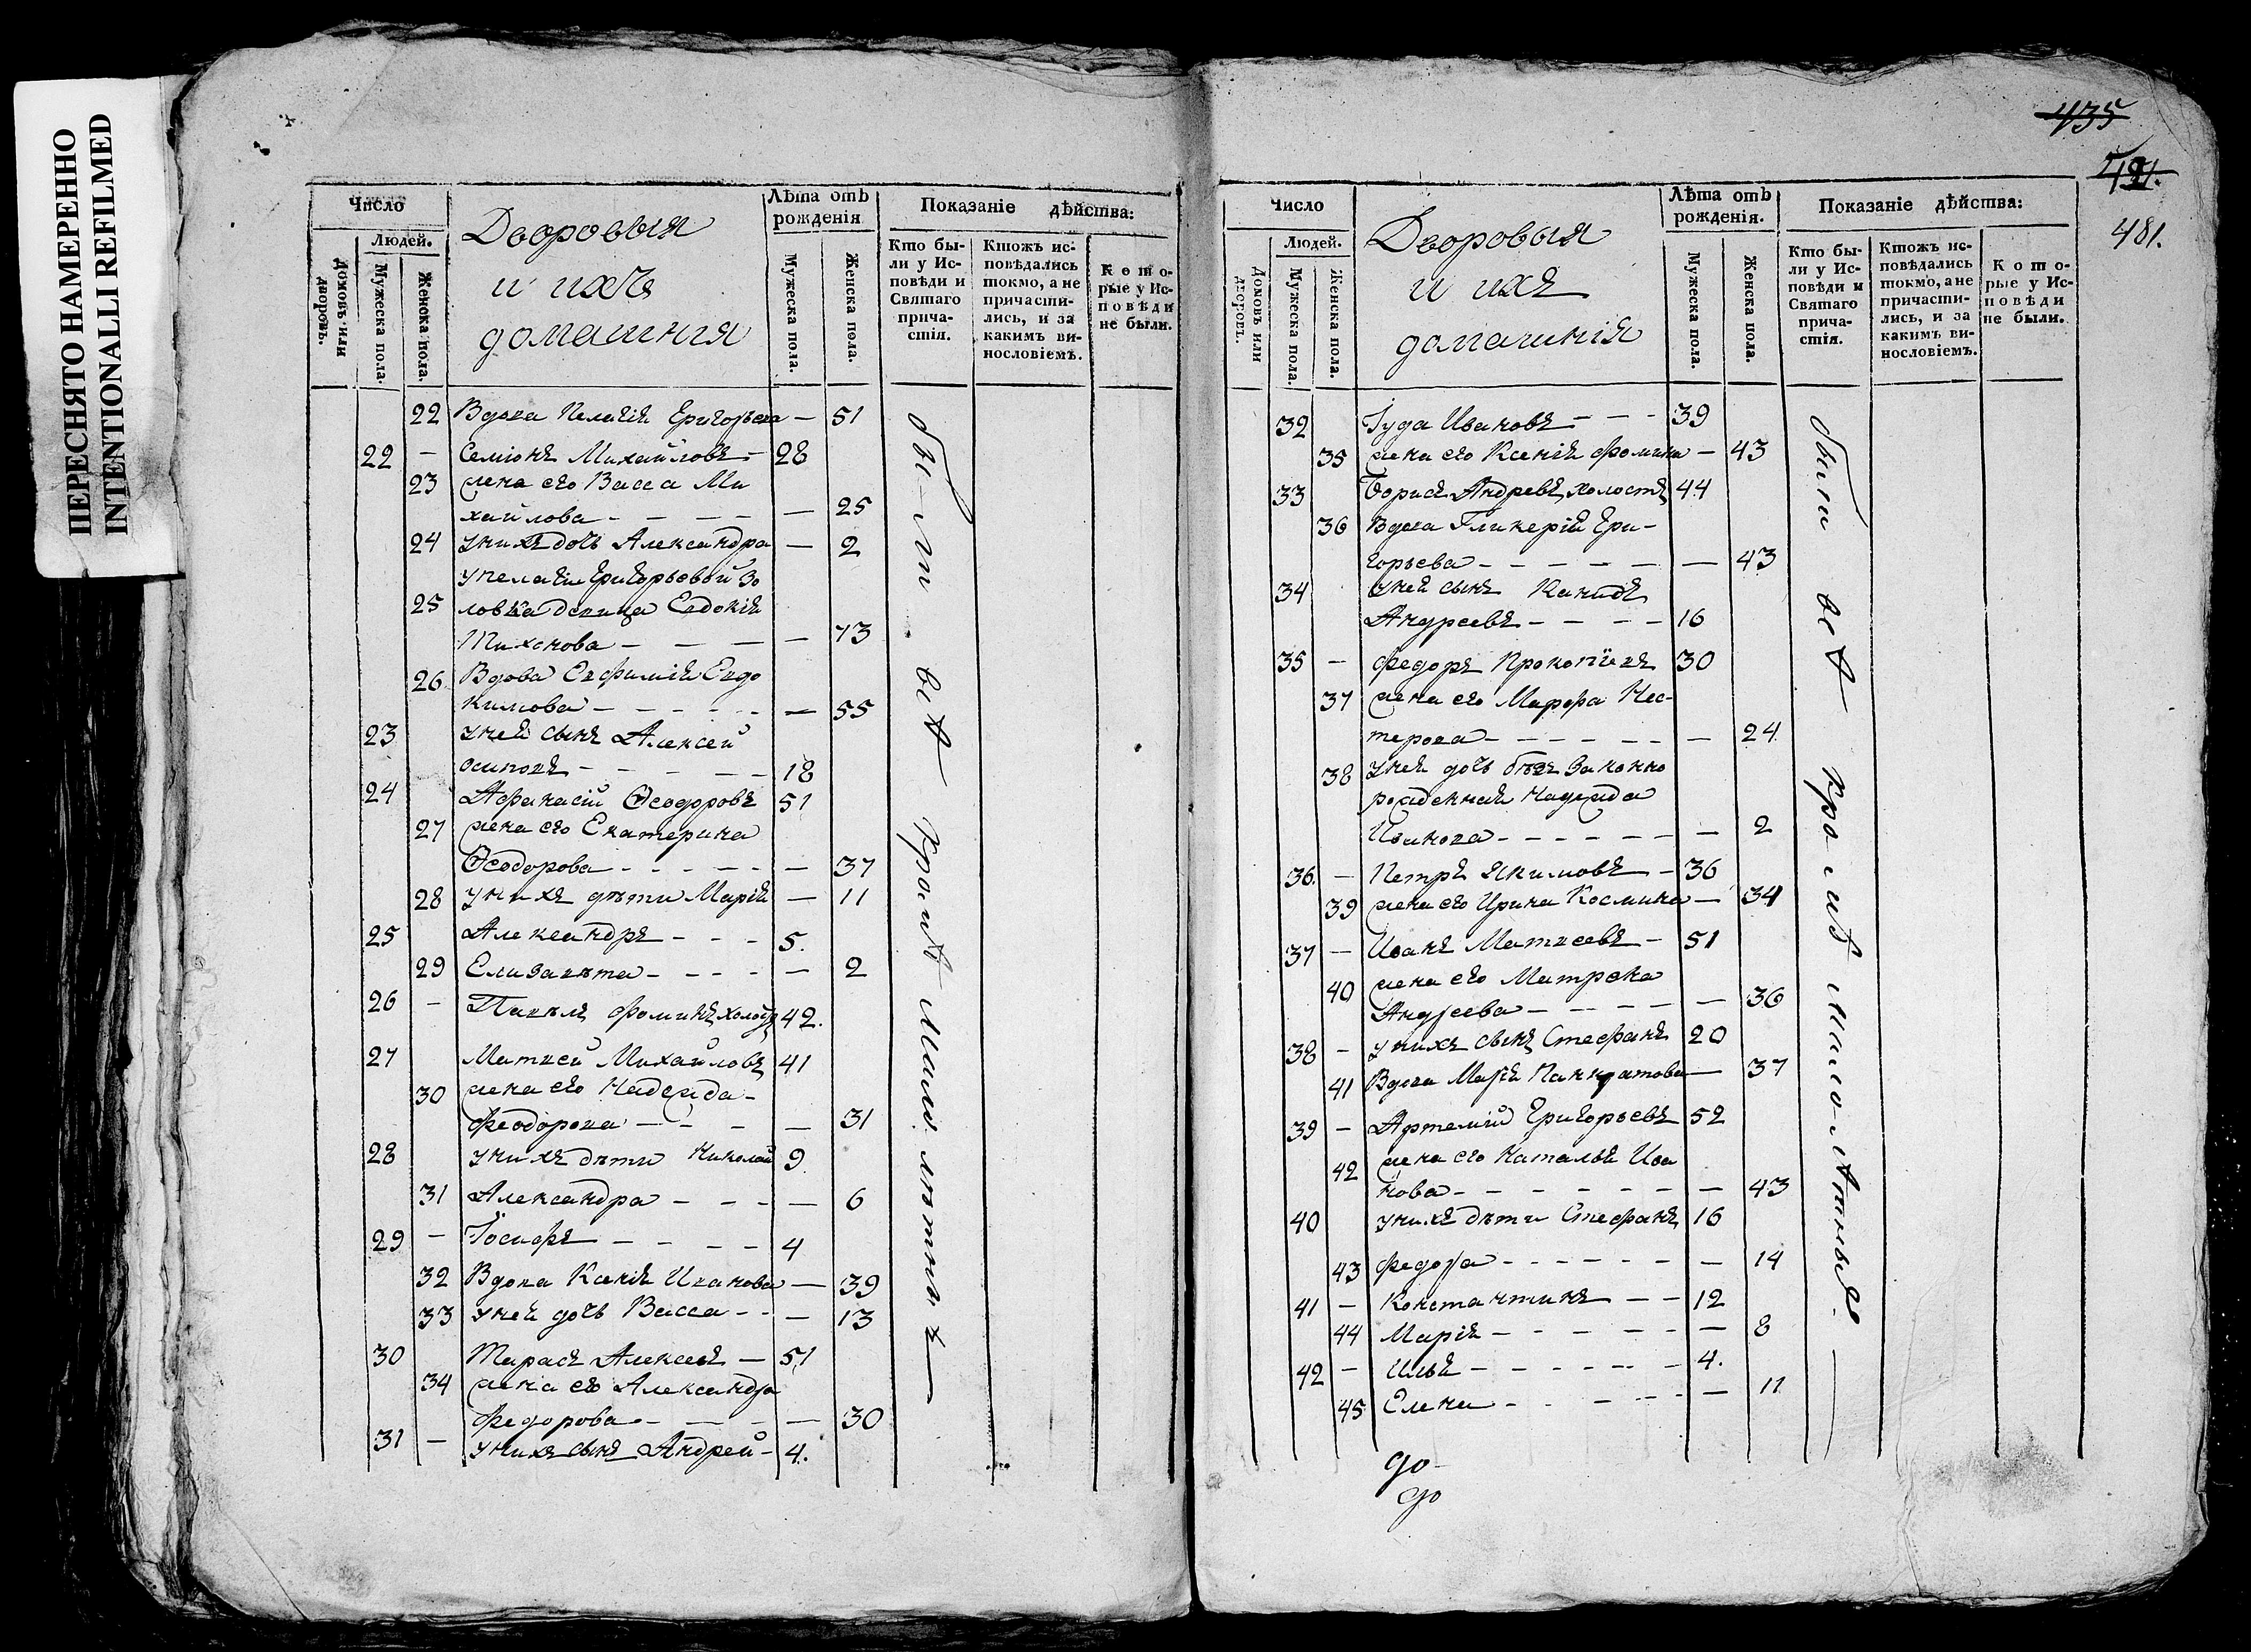 ПЕРЕСНЯТО НАМЕРЕННО
INTENTIONALLI REFILMED
Число
Людей.
Домовъ или дворовъ.
Мужеска пола.
Женска пола.
Дворовыя
и ихъ
домашнія
Лѣта отъ
рожденія
Мужеска пола.
Женска пола.
Показаніе дѣйства:
Кто бы-
ли у Ис-
повѣди и
Святаго
прича-
стія.
Ктожъ ис-
повѣдались
токмо, а не
причасти-
лись, и за
какимъ ви-
нословіемъ.
Кото-
рые у Ис-
повѣди
не были.
22 Вдова Пелагія Григорьева — 51
22 — Семіонъ Михайловъ — 28
23 жена его Васса Ми
хайлова — — — — — 25
24 у нихъ дочь Александра — 2
у Пелагіи Григорьевой зо
25 ловка девица Евдокія
Тихонова — — — — 73
26 Вдова Евфимія Евдо
кимова — — — — — 55
23 у ней сынъ Алексей
Осиповъ — — — — 18
24 Афанасій Ѳеодоровъ 51
27 жена его Екатерина
Ѳеодорова — — — — 37
28 у нихъ дѣти Марія — 11
25 Александръ — — — 5.
29 Елизавѣта — — — — 2
26 — Павелъ Фоминъ холостъ 42.
27 Матвей Михайловъ 41
30 жена его Надежда —
Феодорова — — — — 31
28 у нихъ дѣти Николай 9
31 Александра — — — — 6
29 — Іосифъ — — — — 4
32 Вдова Ксенія Иванова — 39
33 у ней дочь Васса — — — 13
30 Тарасъ Алексеевъ — 51
34 жена его Александра
Федорова — — — — 30
31 — у нихъ сынъ Андрей — 4.
были всѣ кромѣ малолѣтныхъ
435
481.
Число
Людей.
Домовъ или дворовъ.
Мужеска пола.
Женска пола.
Дворовыя
и ихъ
домашнія
Лѣта отъ
рожденія.
Мужеска пола.
Женска пола.
Показаніе дѣйства:
Кто бы-
ли у Ис-
повѣди и
Святаго
прича-
стія.
Ктожъ ис-
повѣдались
токмо, а не
причасти-
лись, и за
какимъ ви-
нословіемъ.
Кото-
рые у Ис-
повѣди
не были.
32 Іуда Ивановъ — — — 39
35 жена его Ксенія Фомина — 43
33 Борисъ Андревъ холостъ 44
36 Вдова Гликерія Гри-
горьева — — — — — — 43
34 У ней сынъ
Андреевъ — — — — 16
35 — Федоръ Прокопіевъ 30
37 жена его Марфа Нес-
терова — — — — — — 24
38 у ней дочь безъ законно
рожденная Надежда
Иванова — — — — — — 2
36. — Петръ Якимовъ — 36
39 жена его Ирина Космина — 34
37 — Иванъ Матвеевъ — 51
40 жена его Матрена
Андреева — — — — — 36
38 — у нихъ сынъ Стефанъ 20
41 Вдова Марія Панкратова — 37
39 — Артемій Григорьевъ 52
42 жена его Наталья Ива
нова — — — — — — — 43
40 у нихъ дѣти Стефанъ 16
43 Федора — — — — — — 14
41 — Константинъ — — 12
44 Марія — — — — — — 8
42 — Илья — — — — — — 4.
45 Елена — — — — — — 11
были всѣ кромѣ малолѣтныхъ
до
до